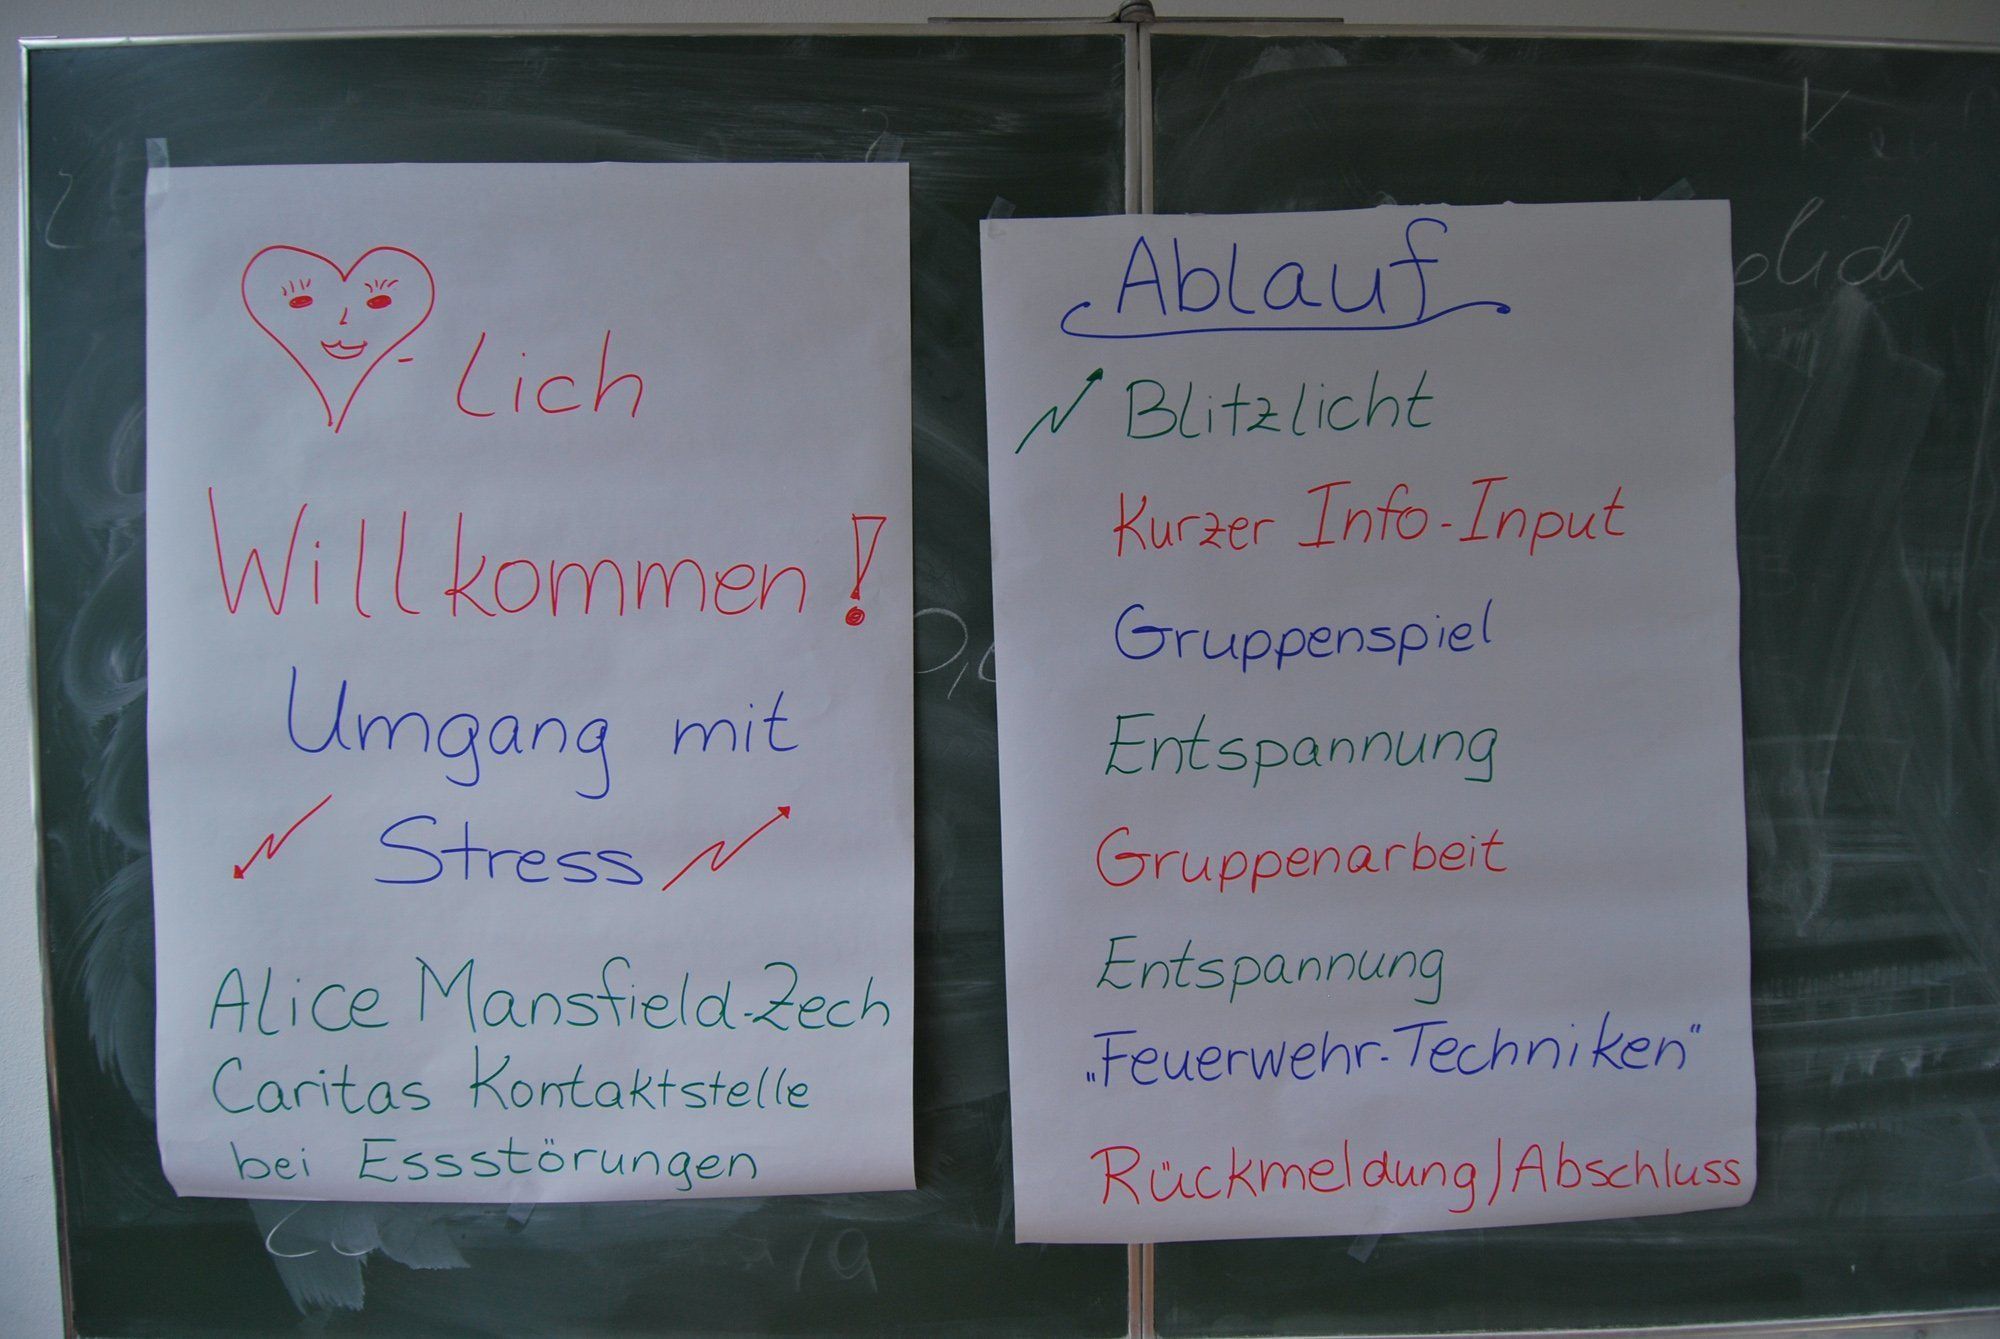 -lich
Willkommen!
Umgang mit
Stress
Alice Mansfield-Zech
Caritas Kontaktstelle
bei Essstörungen
Ablauf
Blitzlicht
Kurzer Info-Input
Gruppenspiel
Entspannung
Gruppenarbeit
Entspannung
„Feuerwehr-Techniken“
Rückmeldung/Abschluss